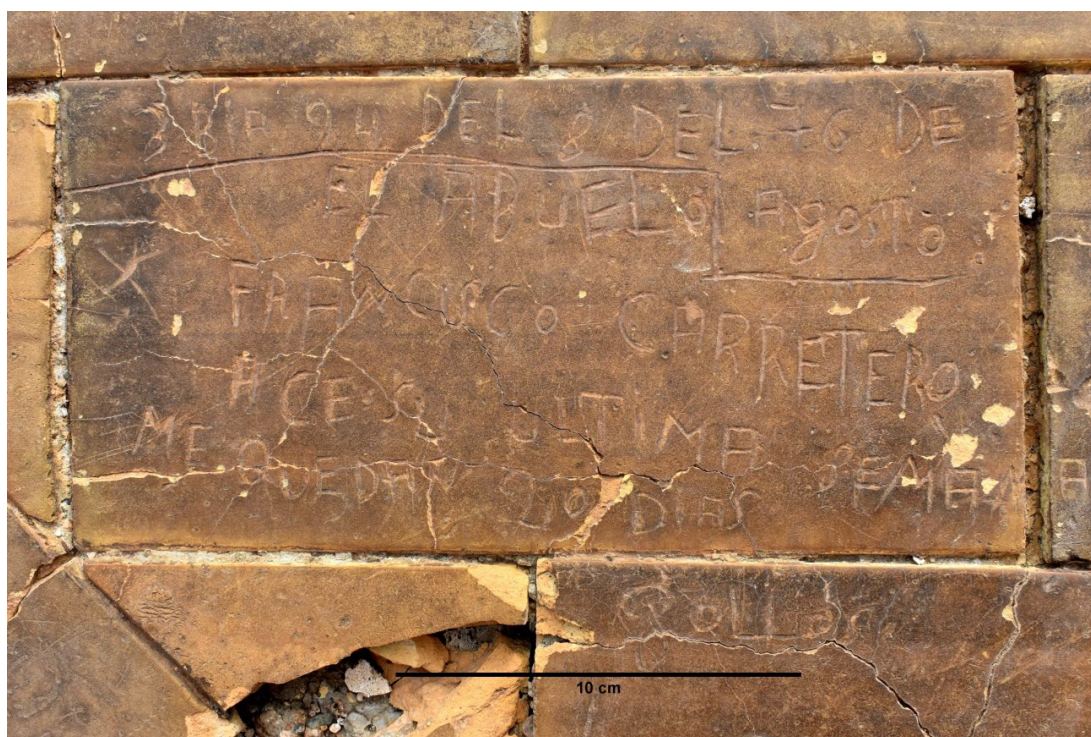 DIA 24 DEL 8 DEL 76 DE
EL ABUELO Agosto
FRANCISCO-CARRETERO
ACE SU ULTIMA SEMANA
ME QUEDAN 20 DIAS
10 cm